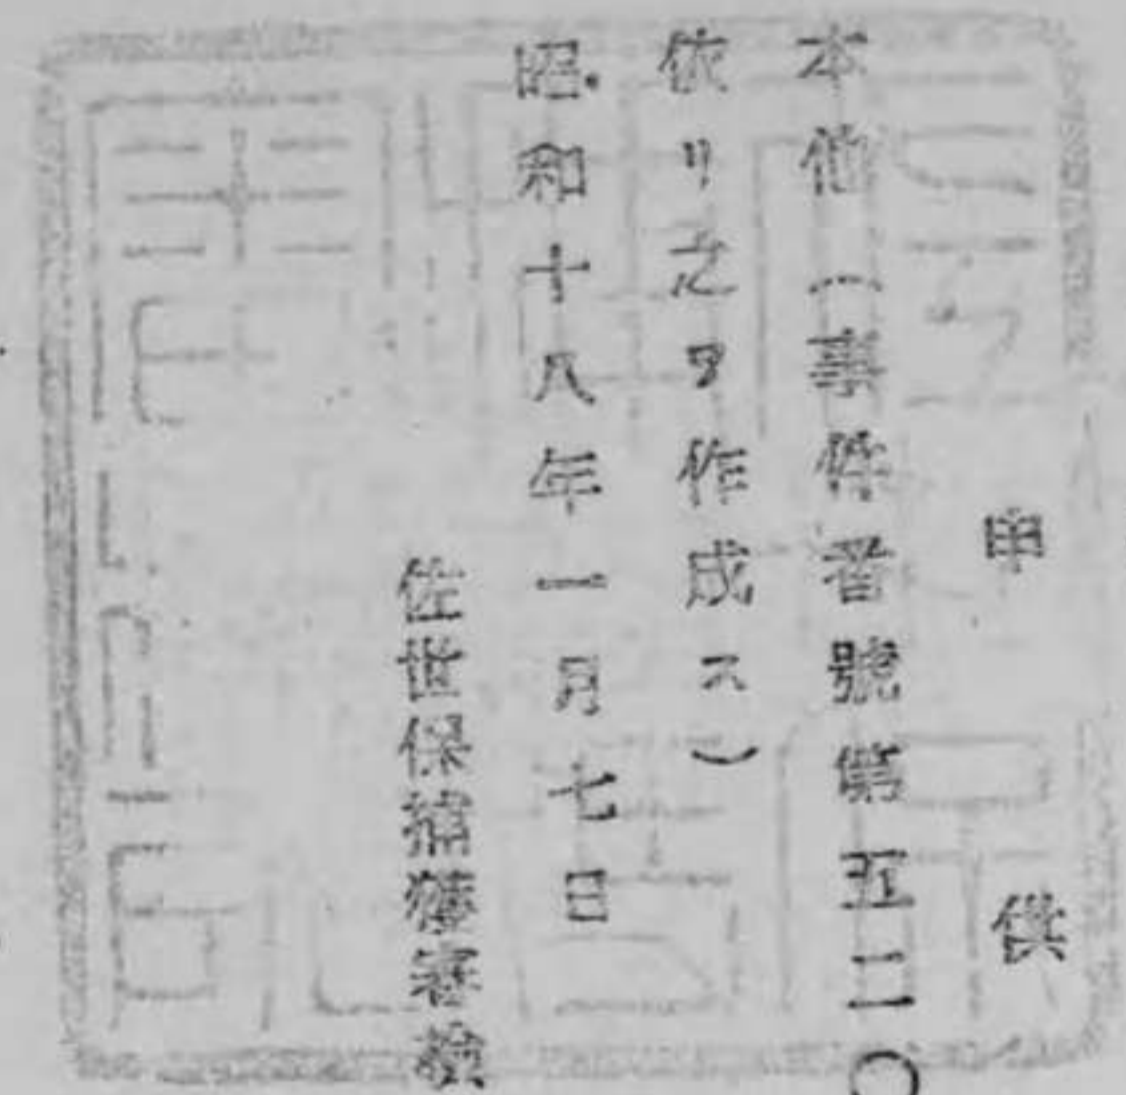 申供
本他(事件番號第五二〇
依リ之ヲ作成ス)
昭和十八年一月七日
佐世保捕獲審檢